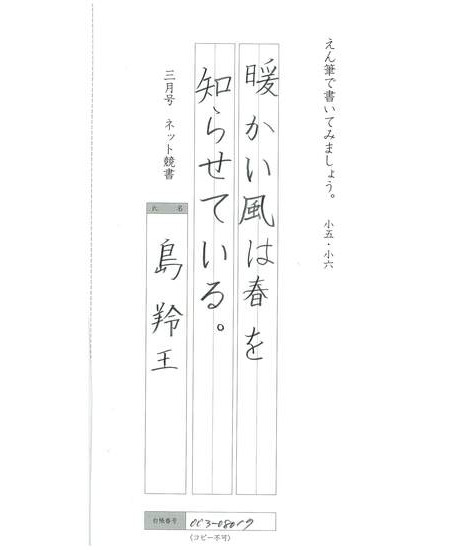 えん筆で書いてみましょう。 小五・小六
暖かい風は春を
知らせている。
三月号 ネット競書
氏名
島羚王
台帳番号
(コピー不可)